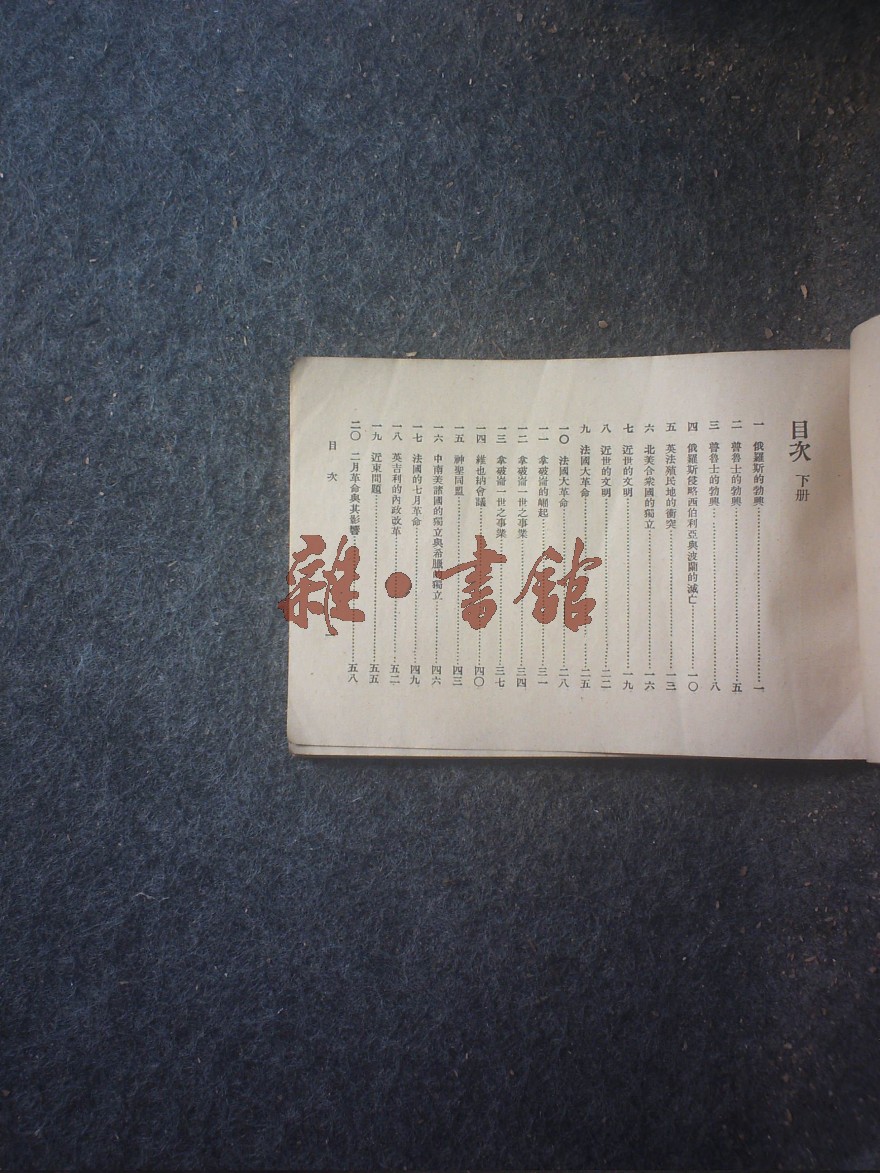 目次 下册
一 俄羅斯的勃興……一
二 普魯士的勃興……五
三 普魯士的勃興……八
四 俄羅斯侵略西伯利亞與波蘭的滅亡……一〇
五 英法殖民地的衝突……一三
六 北美合衆國的獨立……一六
七 近世的文明……一九
八 近世的文明……二二
九 法國大革命……二五
一〇 法國大革命……二八
一一 拿破崙的崛起……三一
一二 拿破崙一世之事業……三四
一三 拿破崙一世之事業……三七
一四 維也納會議……四〇
一五 神聖同盟……四三
一六 中南美諸國的獨立與希臘的獨立……四六
一七 法國的七月革命……四九
一八 英吉利的內政改革……五二
一九 近東問題……五五
二〇 二月革命與其影響……五八
目次 一
雜·書館